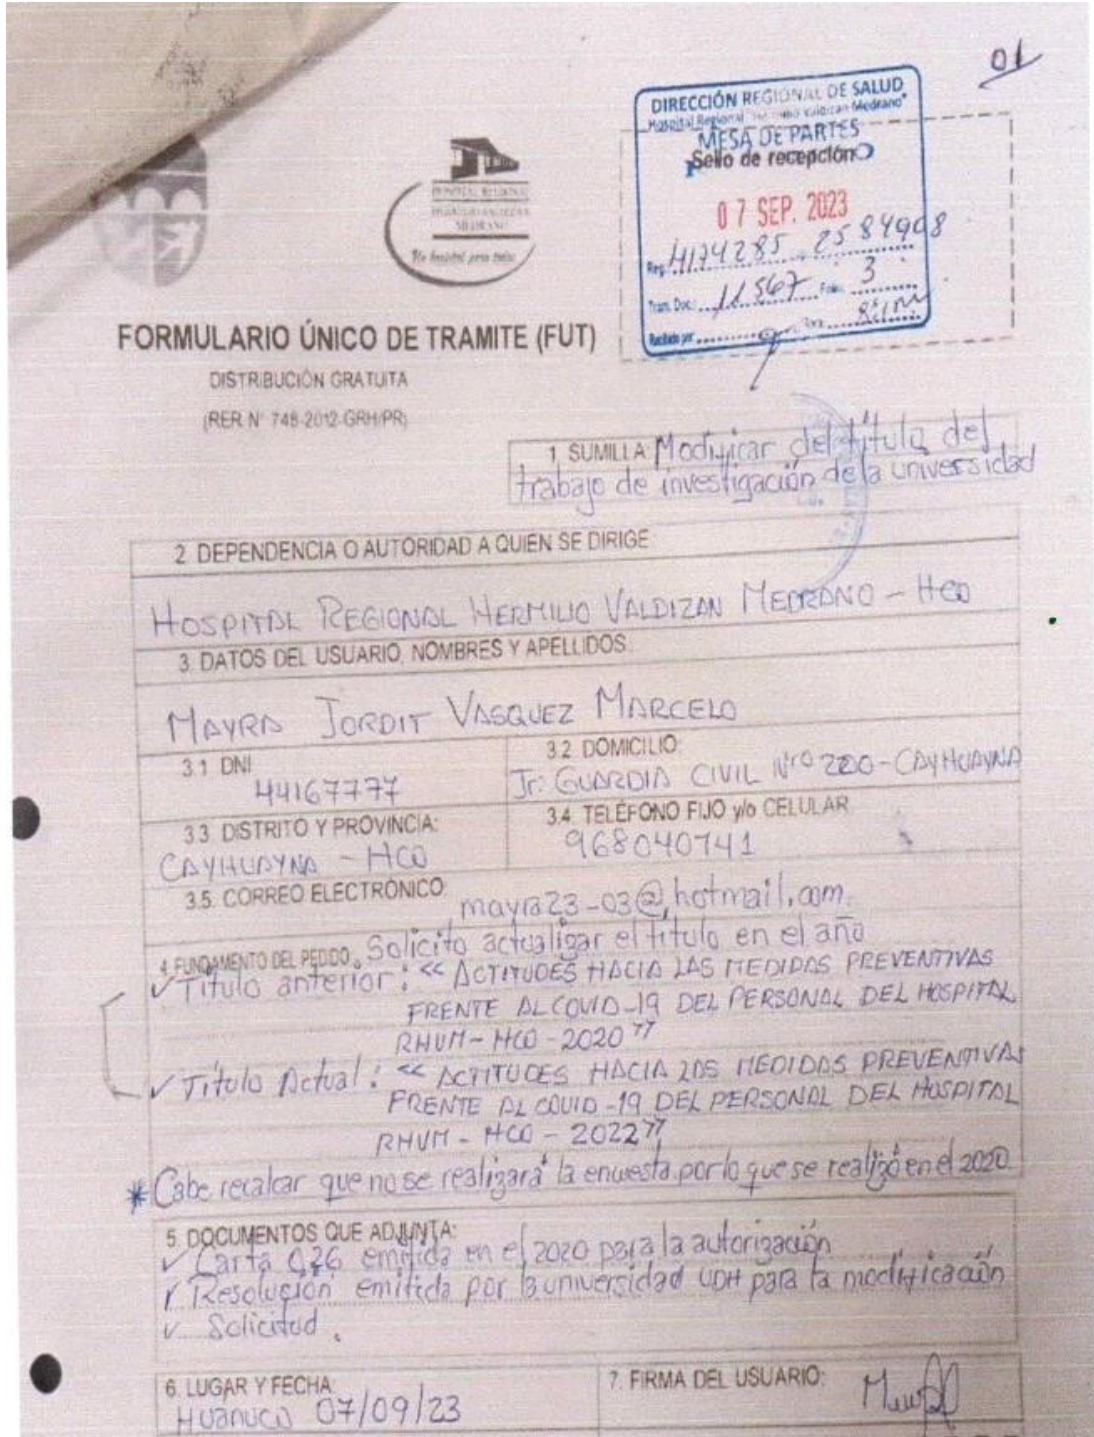 01
DIRECCIÓN REGIONAL DE SALUD
Hospital Regional "Hermilio Valdizan Medrano"
MESA DE PARTES
Sello de recepción
07 SEP. 2023
Reg.: 4174285 2584908
Tram. Doc.: 11567 Folio: 3
Recibido por: Hora:
HOSPITAL REGIONAL
HERMILIO VALDIZAN
MEDRANO
Un hospital para todos
FORMULARIO ÚNICO DE TRAMITE (FUT)
DISTRIBUCIÓN GRATUITA
(RER N° 748-2012-GRH/PR)
1. SUMILLA: Modificar del título del
trabajo de investigación de la universidad
2. DEPENDENCIA O AUTORIDAD A QUIEN SE DIRIGE
HOSPITAL REGIONAL HERMILIO VALDIZAN MEDRANO - HCO
3. DATOS DEL USUARIO, NOMBRES Y APELLIDOS:
MAYRA JORDIT VASQUEZ MARCELO
3.1 DNI
44167777
3.2 DOMICILIO:
Jr: GUARDIA CIVIL Nro 220 - CAYHUAYNA
3.3. DISTRITO Y PROVINCIA:
CAYHUAYNA - HCO
3.4. TELÉFONO FIJO y/o CELULAR
968040741
3.5. CORREO ELECTRÓNICO
mayra23-03@hotmail.com.
4. FUNDAMENTO DEL PEDIDO: Solicito actualizar el título en el año
✓ Título anterior: << ACTITUDES HACIA LAS MEDIDAS PREVENTIVAS
FRENTE AL COVID-19 DEL PERSONAL DEL HOSPITAL
RHUM - HCO - 2020 >>
✓ Título Actual: << ACTITUDES HACIA LAS MEDIDAS PREVENTIVAS
FRENTE AL COVID-19 DEL PERSONAL DEL HOSPITAL
RHVM - HCO - 2022 >>
* Cabe recalcar que no se realizará la encuesta por lo que se realizó en el 2020.
5. DOCUMENTOS QUE ADJUNTA:
✓ Carta 026 emitida en el 2020 para la autorización
✓ Resolución emitida por la universidad UDH para la modificación
✓ Solicitud.
6. LUGAR Y FECHA:
Huanuco 07/09/23
7. FIRMA DEL USUARIO: